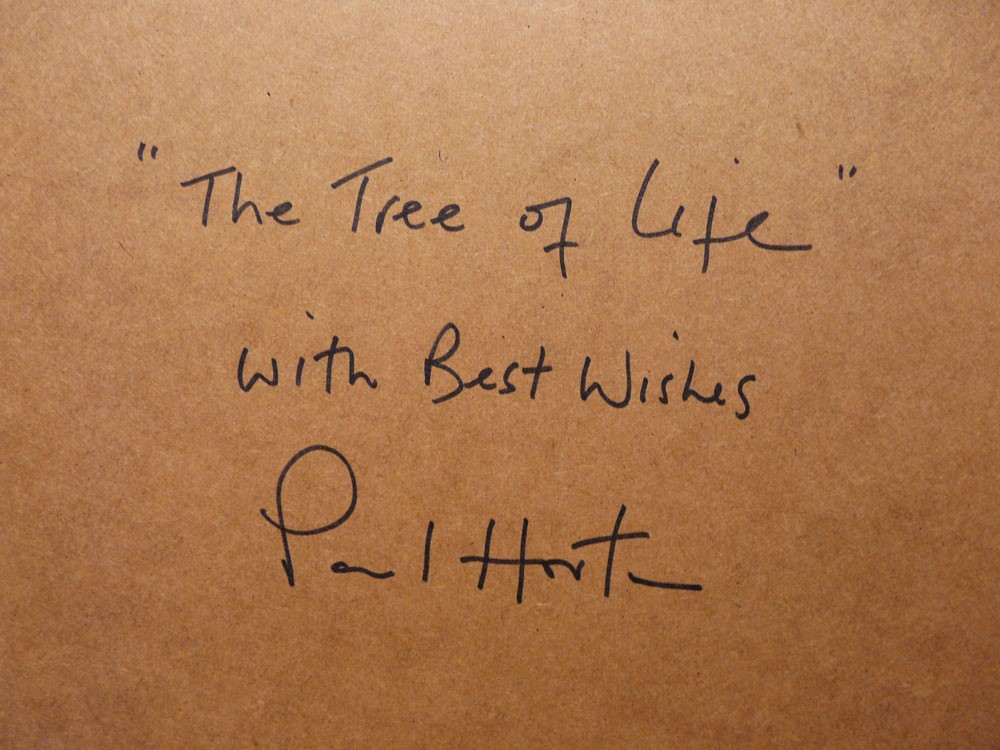 "The Tree of Life"
with Best Wishes
Paul Horton